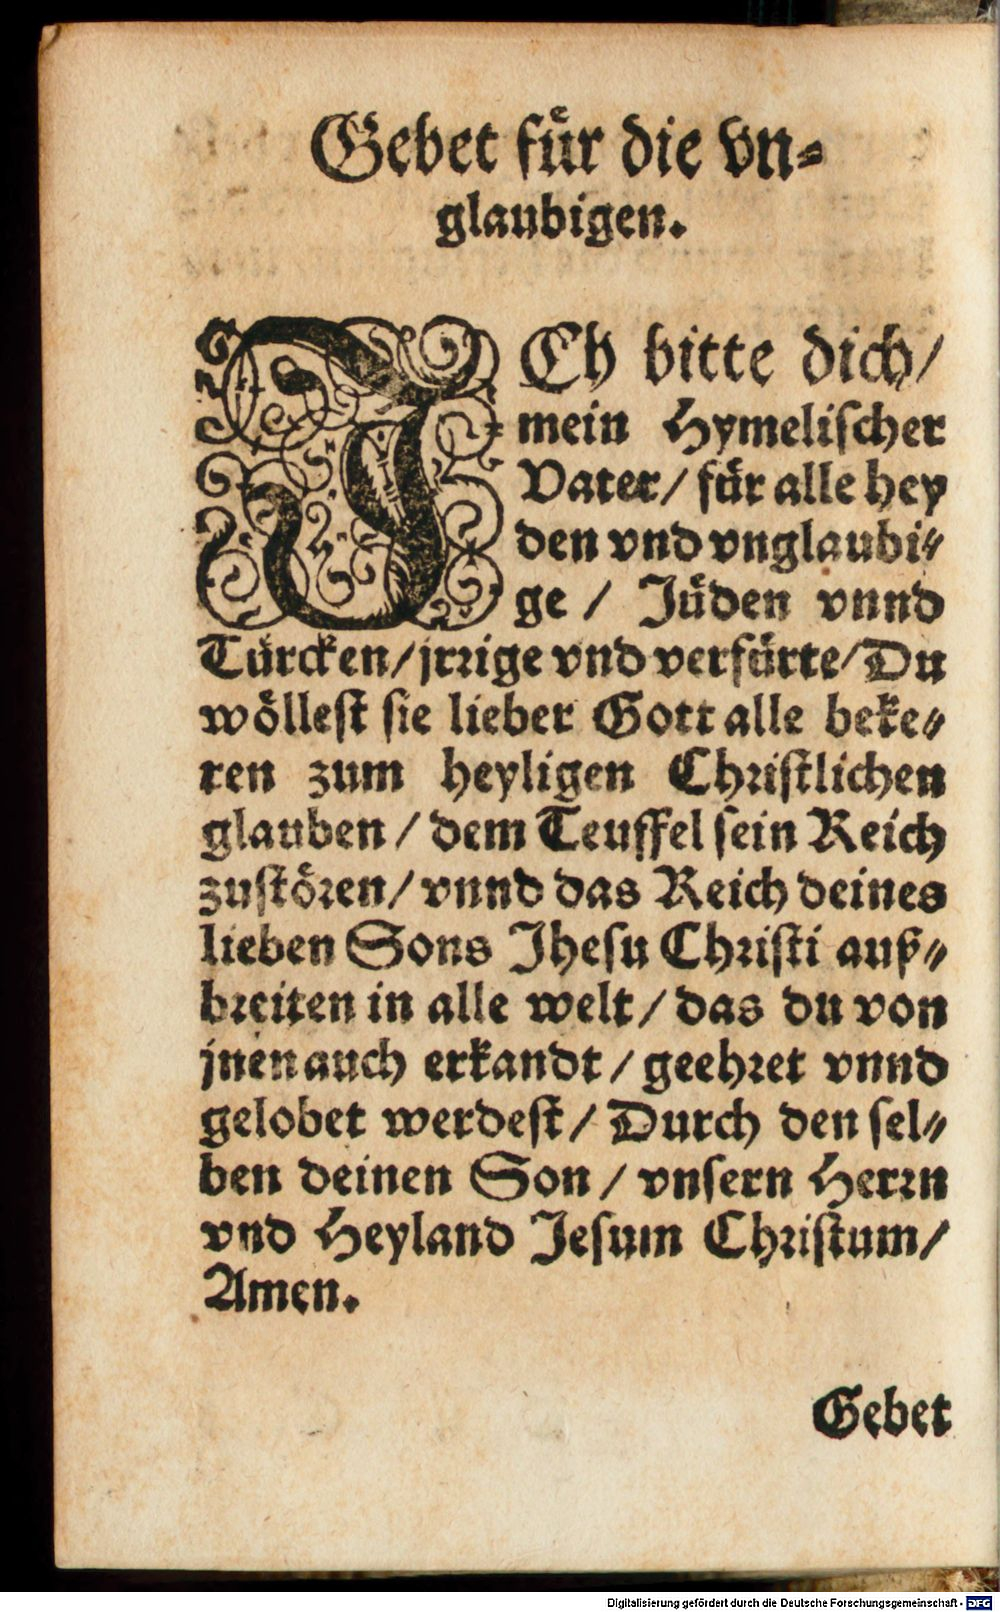 Gebet für die vn⸗
glaubigen.
ICh bitte dich/
mein Hymelischer
Vater/ für alle hey
den vnd vnglaubi⸗
ge / Jüden vnnd
Türcken/ jrrige vnd verfürte/ Du
wöllest sie lieber Gott alle beke⸗
ren zum heyligen Christlichen
glauben / dem Teuffel sein Reich
zustören/ vnnd das Reich deines
lieben Sons Jhesu Christi auß⸗
breiten in alle welt/ das du von
jnen auch erkandt / geehret vnnd
gelobet werdest/ Durch den sel⸗
ben deinen Son / vnsern Herrn
vnd Heyland Jesum Christum/
Amen.
Gebet
Digitalisierung gefördert durch die Deutsche Forschungsgemeinschaft - DFG